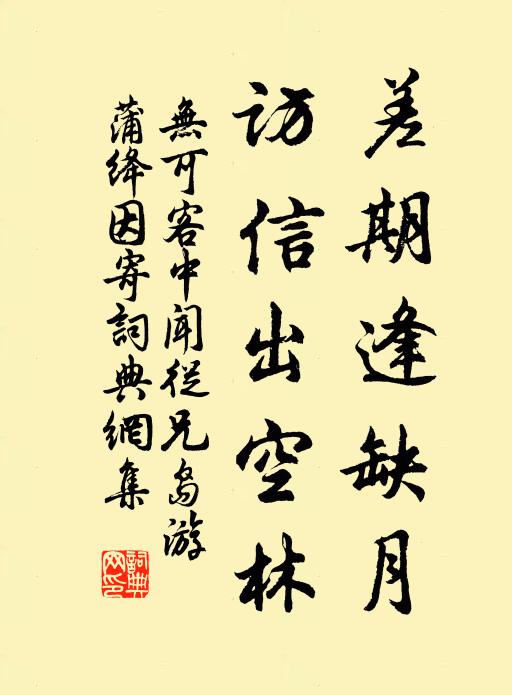 差期逢缺月
访信出空林
無可客中闻從兄岛游
蒲绛因寄詞典網集
詞典网印